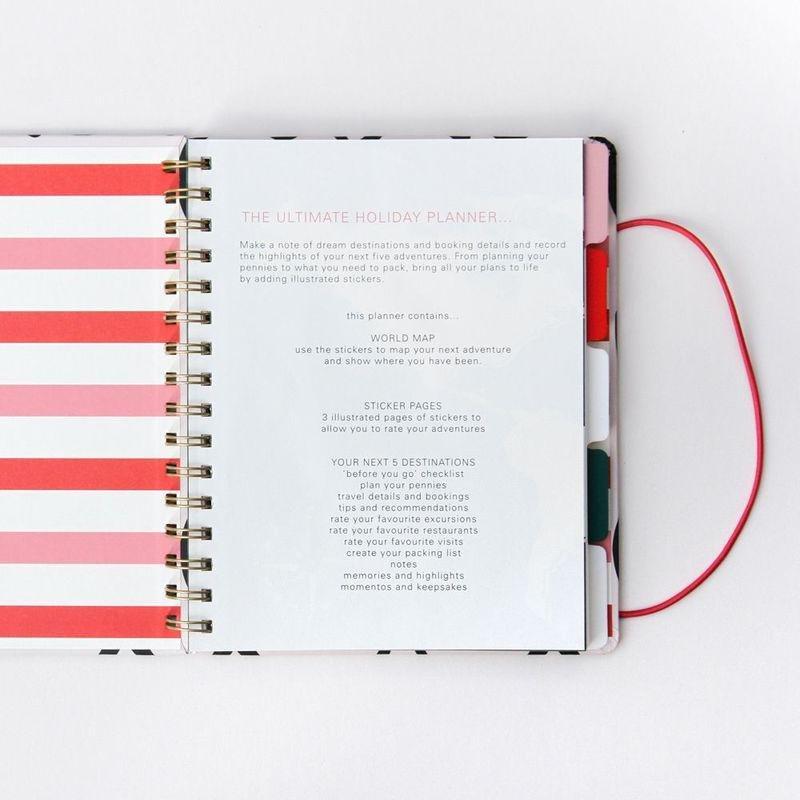 THE ULTIMATE HOLIDAY PLANNER...
Make a note of dream destinations and booking details and record
the highlights of your next five adventures. From planning your
pennies to what you need to pack, bring all your plans to life
by adding illustrated stickers.
this planner contains...
WORLD MAP
use the stickers to map your next adventure
and show where you have been.
STICKER PAGES
3 illustrated pages of stickers to
allow you to rate your adventures
YOUR NEXT 5 DESTINATIONS
'before you go' checklist
plan your pennies
travel details and bookings
tips and recommendations
rate your favourite excursions
rate your favourite restaurants
rate your favourite visits
create your packing list
notes
memories and highlights
momentos and keepsakes